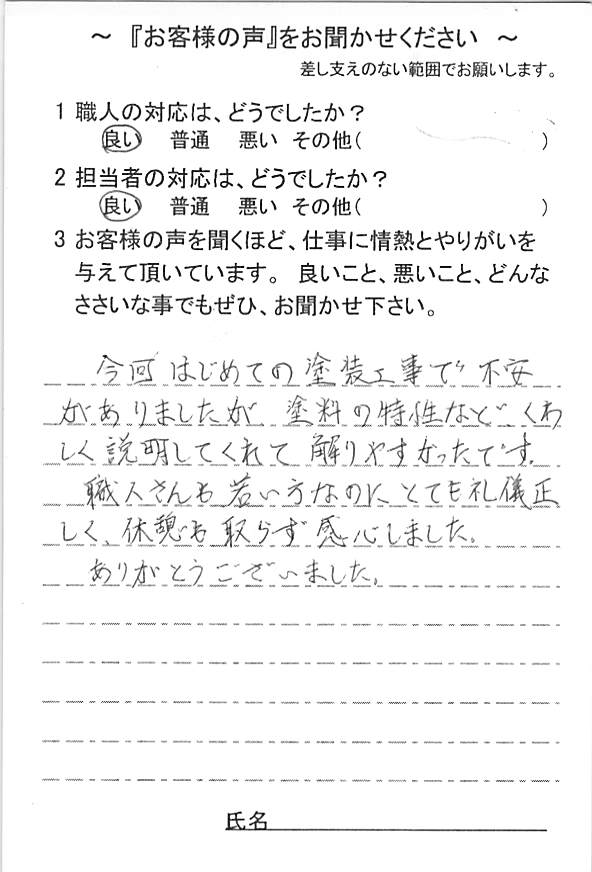 ～『お客様の声』をお聞かせください ～
差し支えのない範囲でお願いします。
1 職人の対応は、どうでしたか？
良い 普通 悪い その他( )
2 担当者の対応は、どうでしたか？
良い 普通 悪い その他( )
3 お客様の声を聞くほど、仕事に情熱とやりがいを
与えて頂いています。 良いこと、悪いこと、どんな
ささいな事でもぜひ、お聞かせ下さい。
今回はじめての塗装工事で不安
がありましたが 塗料の特性など くわ
しく説明してくれて 解りやすかったです。
職人さんも若い方なのにとても礼儀正
しく、休憩も取らず感心しました。
ありがとうございました。
氏名